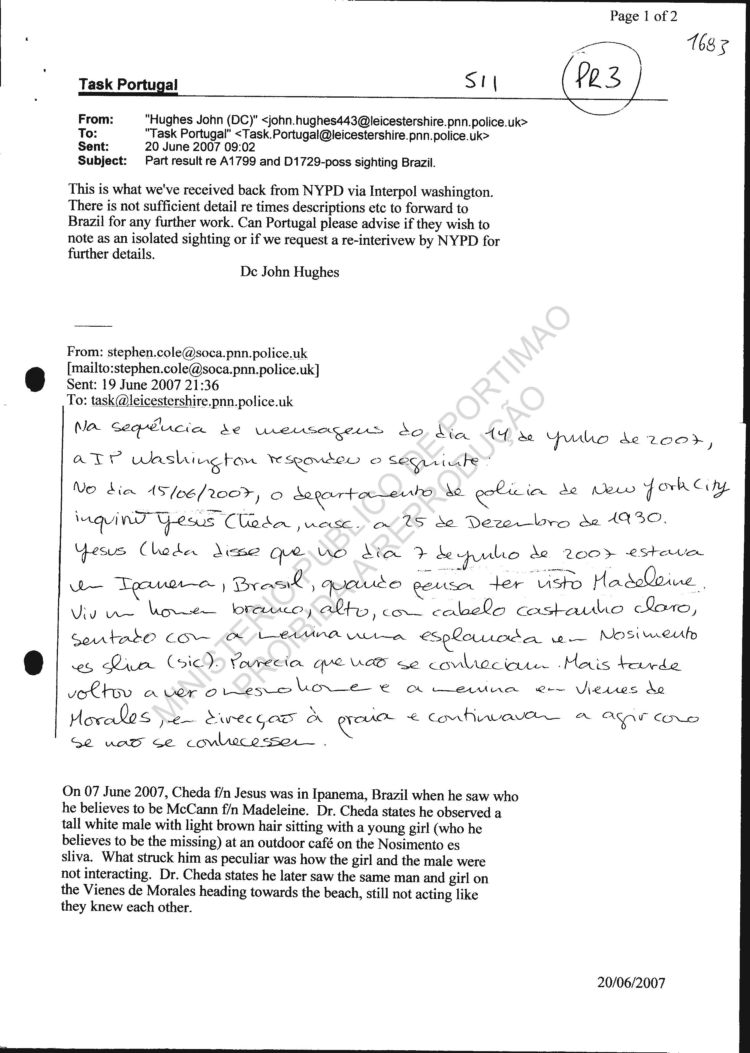 Page 1 of 2
1683
Task Portugal
511
PR3
From: "Hughes John (DC)" <john.hughes443@leicestershire.pnn.police.uk>
To: "Task Portugal" <Task.Portugal@leicestershire.pnn.police.uk>
Sent: 20 June 2007 09:02
Subject: Part result re A1799 and D1729-poss sighting Brazil.
This is what we've received back from NYPD via Interpol washington.
There is not sufficient detail re times descriptions etc to forward to
Brazil for any further work. Can Portugal please advise if they wish to
note as an isolated sighting or if we request a re-interivew by NYPD for
further details.
Dc John Hughes
From: stephen.cole@soca.pnn.police.uk
[mailto:stephen.cole@soca.pnn.police.uk]
Sent: 19 June 2007 21:36
To: task@leicestershire.pnn.police.uk
Na sequência de mensagens do dia 14 de Junho de 2007,
a IP Washington respondeu o seguinte:
No dia 15/06/2007, o departamento de polícia de New York City
inquiriu Yesus Cheda, nasc. a 25 de Dezembro de 1930.
Yesus Cheda disse que no dia 7 de Junho de 2007 estava
em Ipanema, Brasil, quando pensa ter visto Madeleine.
Viu um homem branco, alto, com cabelo castanho claro,
sentado com a menina numa esplanada em Nosimento
es sliva (sic). Parecia que não se conheciam. Mais tarde
voltou a ver o mesmo home e a menina em Vienes de
Morales, em direcção à praia e continuavam a agir como
se não se conhecessem.
MINISTÉRIO PUBLICO DE PORTIMAO
PROIBIDA A REPRODUÇÃO
On 07 June 2007, Cheda f/n Jesus was in Ipanema, Brazil when he saw who
he believes to be McCann f/n Madeleine. Dr. Cheda states he observed a
tall white male with light brown hair sitting with a young girl (who he
believes to be the missing) at an outdoor café on the Nosimento es
sliva. What struck him as peculiar was how the girl and the male were
not interacting. Dr. Cheda states he later saw the same man and girl on
the Vienes de Morales heading towards the beach, still not acting like
they knew each other.
20/06/2007